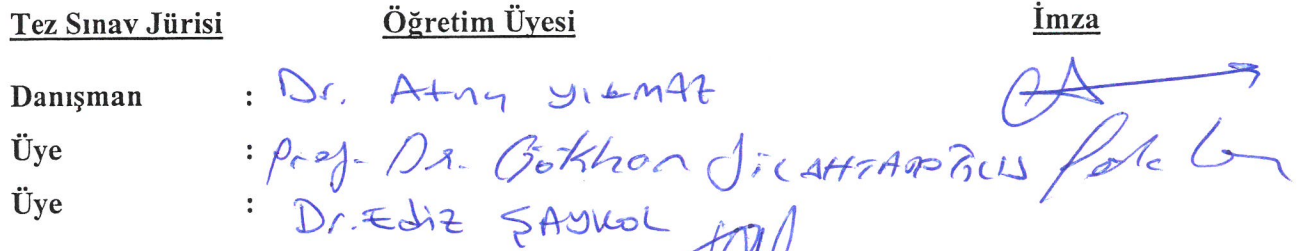 Tez Sınav Jürisi Öğretim Üyesi İmza
Danışman : Dr. Atınç YILMAZ
Üye : Prof. Dr. Gökhan SİLAHTAROĞLU
Üye : Dr. Ediz ŞAYKOL